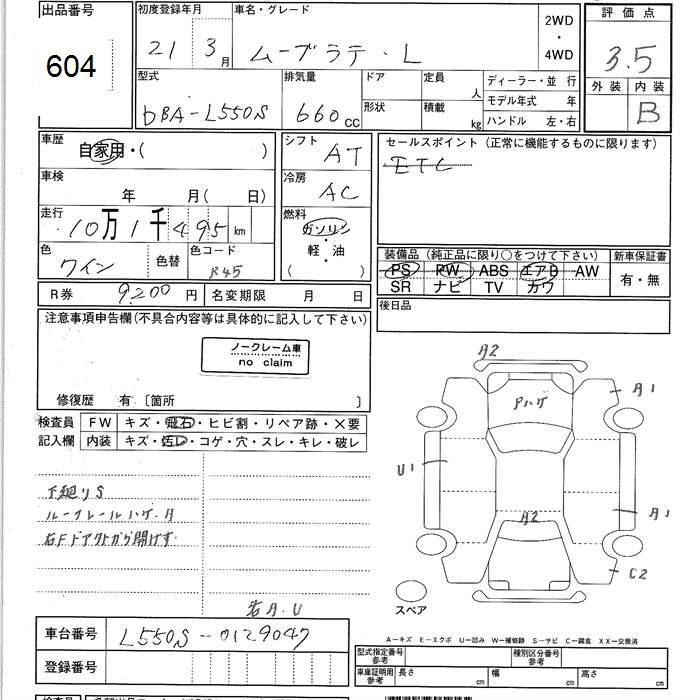 出品番号
604
初度登録年月
21 3月
車名・グレード
ムーブラテ・L
2WD
・
4WD
評 価 点
3.5
外 装 内 装
B
型式
DBA-L550S
排気量
660cc
ドア
形状
定員
人
積載
kg
ディーラー・並 行
モデル年式 年
ハンドル 左・右
車歴
自家用・( )
車検
年 月( 日)
走行
10万1千495km
色
ワイン
色替
色コード
R45
シフト
AT
冷房
AC
燃料
ガソリン
・
軽・油
( )
セールスポイント（正常に機能するものに限ります）
ETC
装備品（純正品に限り○をつけて下さい）
PS PW ABS エアB AW
SR ナビ TV カワ
新車保証書
有・無
後日品
R券 9200円
名変期限 月 日
注意事項申告欄(不具合内容等は具体的に記入して下さい)
ノークレーム車
no claim
修復歴 有〔箇所 〕
検査員
記入欄
FW キズ・飛石・ヒビ割・リペア跡・×要
内装 キズ・汚レ・コゲ・穴・スレ・キレ・破レ
下廻りS
ルーフレールハゲ・
右Fドア外から開けず
A.U
A2
Pハゲ
A1
U1
A1
A2
C2
スペア
車台番号 L550S-0129047
登録番号
A－キズ E－エクボ U－凹み W－補修跡 S－サビ C－腐食 XX－交換済
型式指定番号
参考
種別区分番号
参考
車庫証明用
参考
長さ cm
幅 cm
高さ cm
検査員